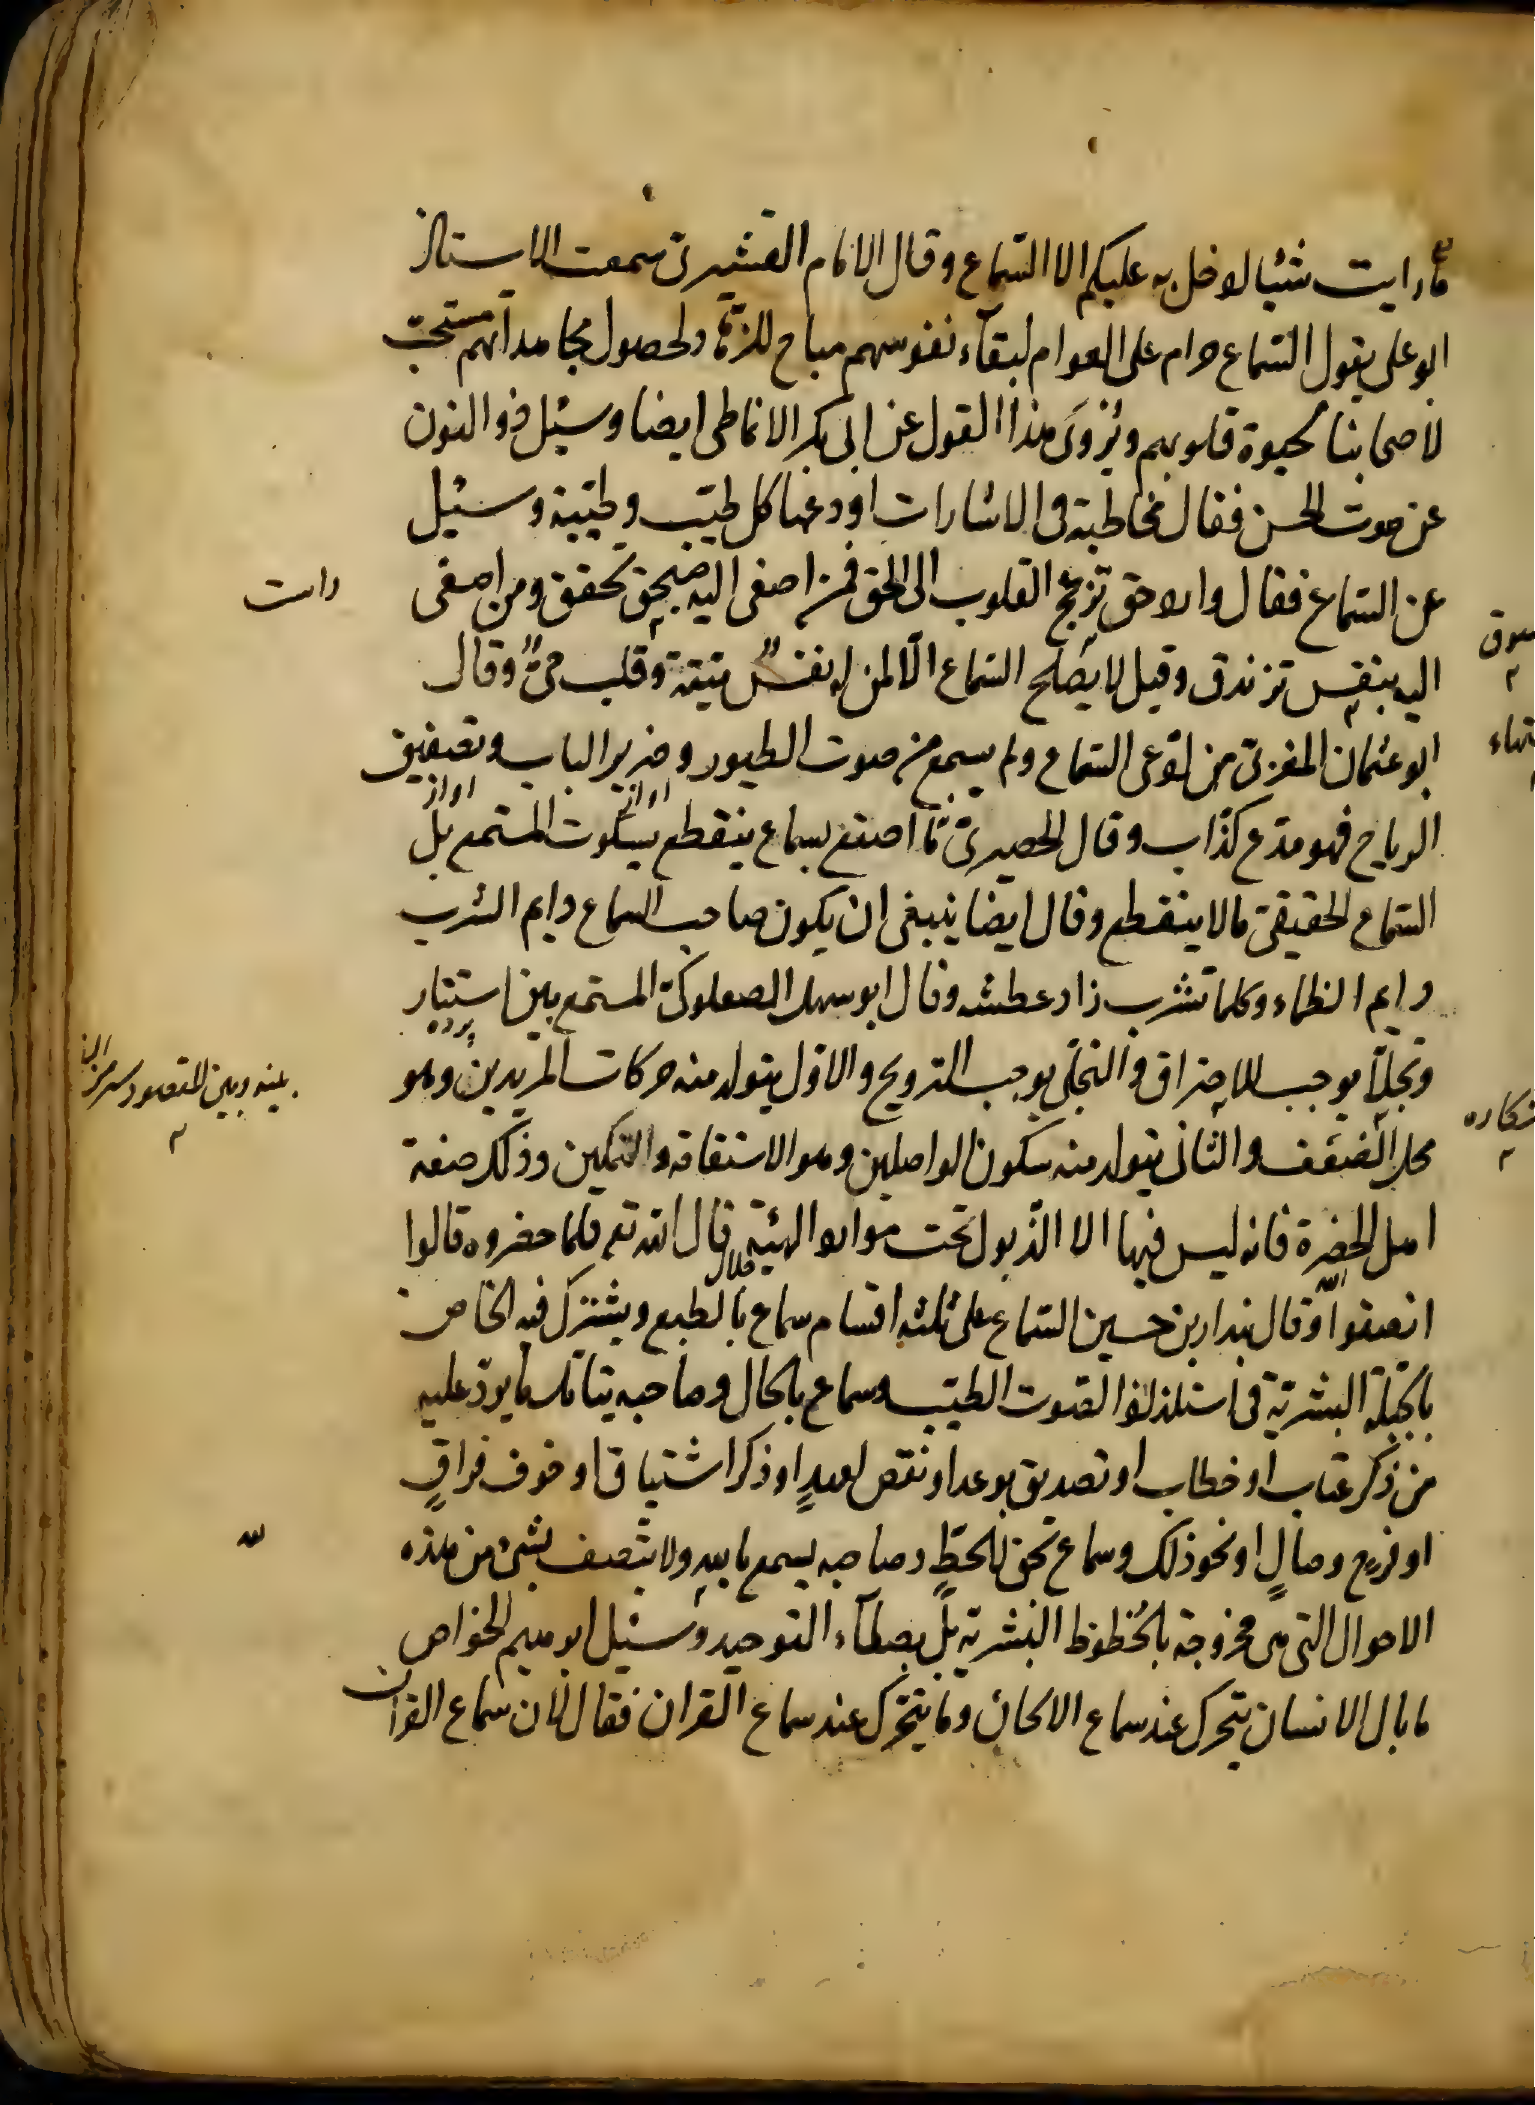 ما رايت شيئا لادخل به عليكم الا السّماع وقال الامام القشيرى سمعت الاستاذ
ابو على يقول السّماع حرام على العوام لبقآء نفوسهم مباح للزهّاد لحصول مجاهداتهم مستحبّ
لاصحابنا لحيوة قلوبهم ويُروَى هذا القول عن ابى بكر الانماطى ايضا وسئل ذو النون
عن صوت الحسن فقال مخاطبة فى الاشارات اودعها كل طيّب وطيّبة وسئيل
عن السّماع فقال وارد حق تزعج القلوب الى الحق فمن اصغى اليه بحق تحقق ومن اصغى
اليه بنفس تزندق وقيل لا يصلح السّماع الّا لمن له نفسٌ ميتة وقلب حىٌّ وقال
ابو عثمان المغربىّ من ادّعى السّماع ولم يسمع من صوت الطيور وضرير الباب وتصفيق
اواز اواز
الرياح فهو مدّع كذّاب وقال الحصيرىّ ما اصنع بسماع ينقطع بسكوت المستمع بل
السّماع الحقيقىّ ما لا ينقطع وقال ايضا ينبغى ان يكون صاحب السماع دايم الشرب
دايم الظماء وكلما تشرب زاد عطشه وقال ابو سهل الصعلوكىّ المستمع بين استتار
پرده
وتجلّ يوجب الاحتراق والتجلّى يوجب الترويح والاوّل يتولد منه حركات المريدين وهو
محل الضعف والثانى يتولد منه سكون الواصلين وهو الاستقامة والتمكين وذلك صفة
اهل الحضرة فانه ليس فيها الا الذّبول تحت موارد الهيبة قال الله تع فلما حضروه قالوا
انصتوا وقال بندار بن حسين السّماع على ثلثه اقسام سماع بالطبع ويشترك فيه الخاص
بالجبلّة البشريّة فى استلذاذ الصّوت الطيّب وسماع بالحال وصاحبه يتامّل ما يورد عليه
من ذكر عتاب او خطاب او تصديق بوعد او نقض لعهدٍ او ذكر اشتياق او خوف فراقٍ
او فرح وصالٍ او نحو ذلك وسماع بحق للحظّ وصاحبه يسمع بالله ولا يتصف بشئ من هذه
الاحوال التى هى ممزوجة بالحُظوظ البشريّة بل بصفآء التوحيد وسئيل ابرهيم الخواص
ما بال الانسان يتحرك عند سماع الالحان وما يتحرّك عند سماع القران فقال لان سماع القران
بينه وبين المقصود